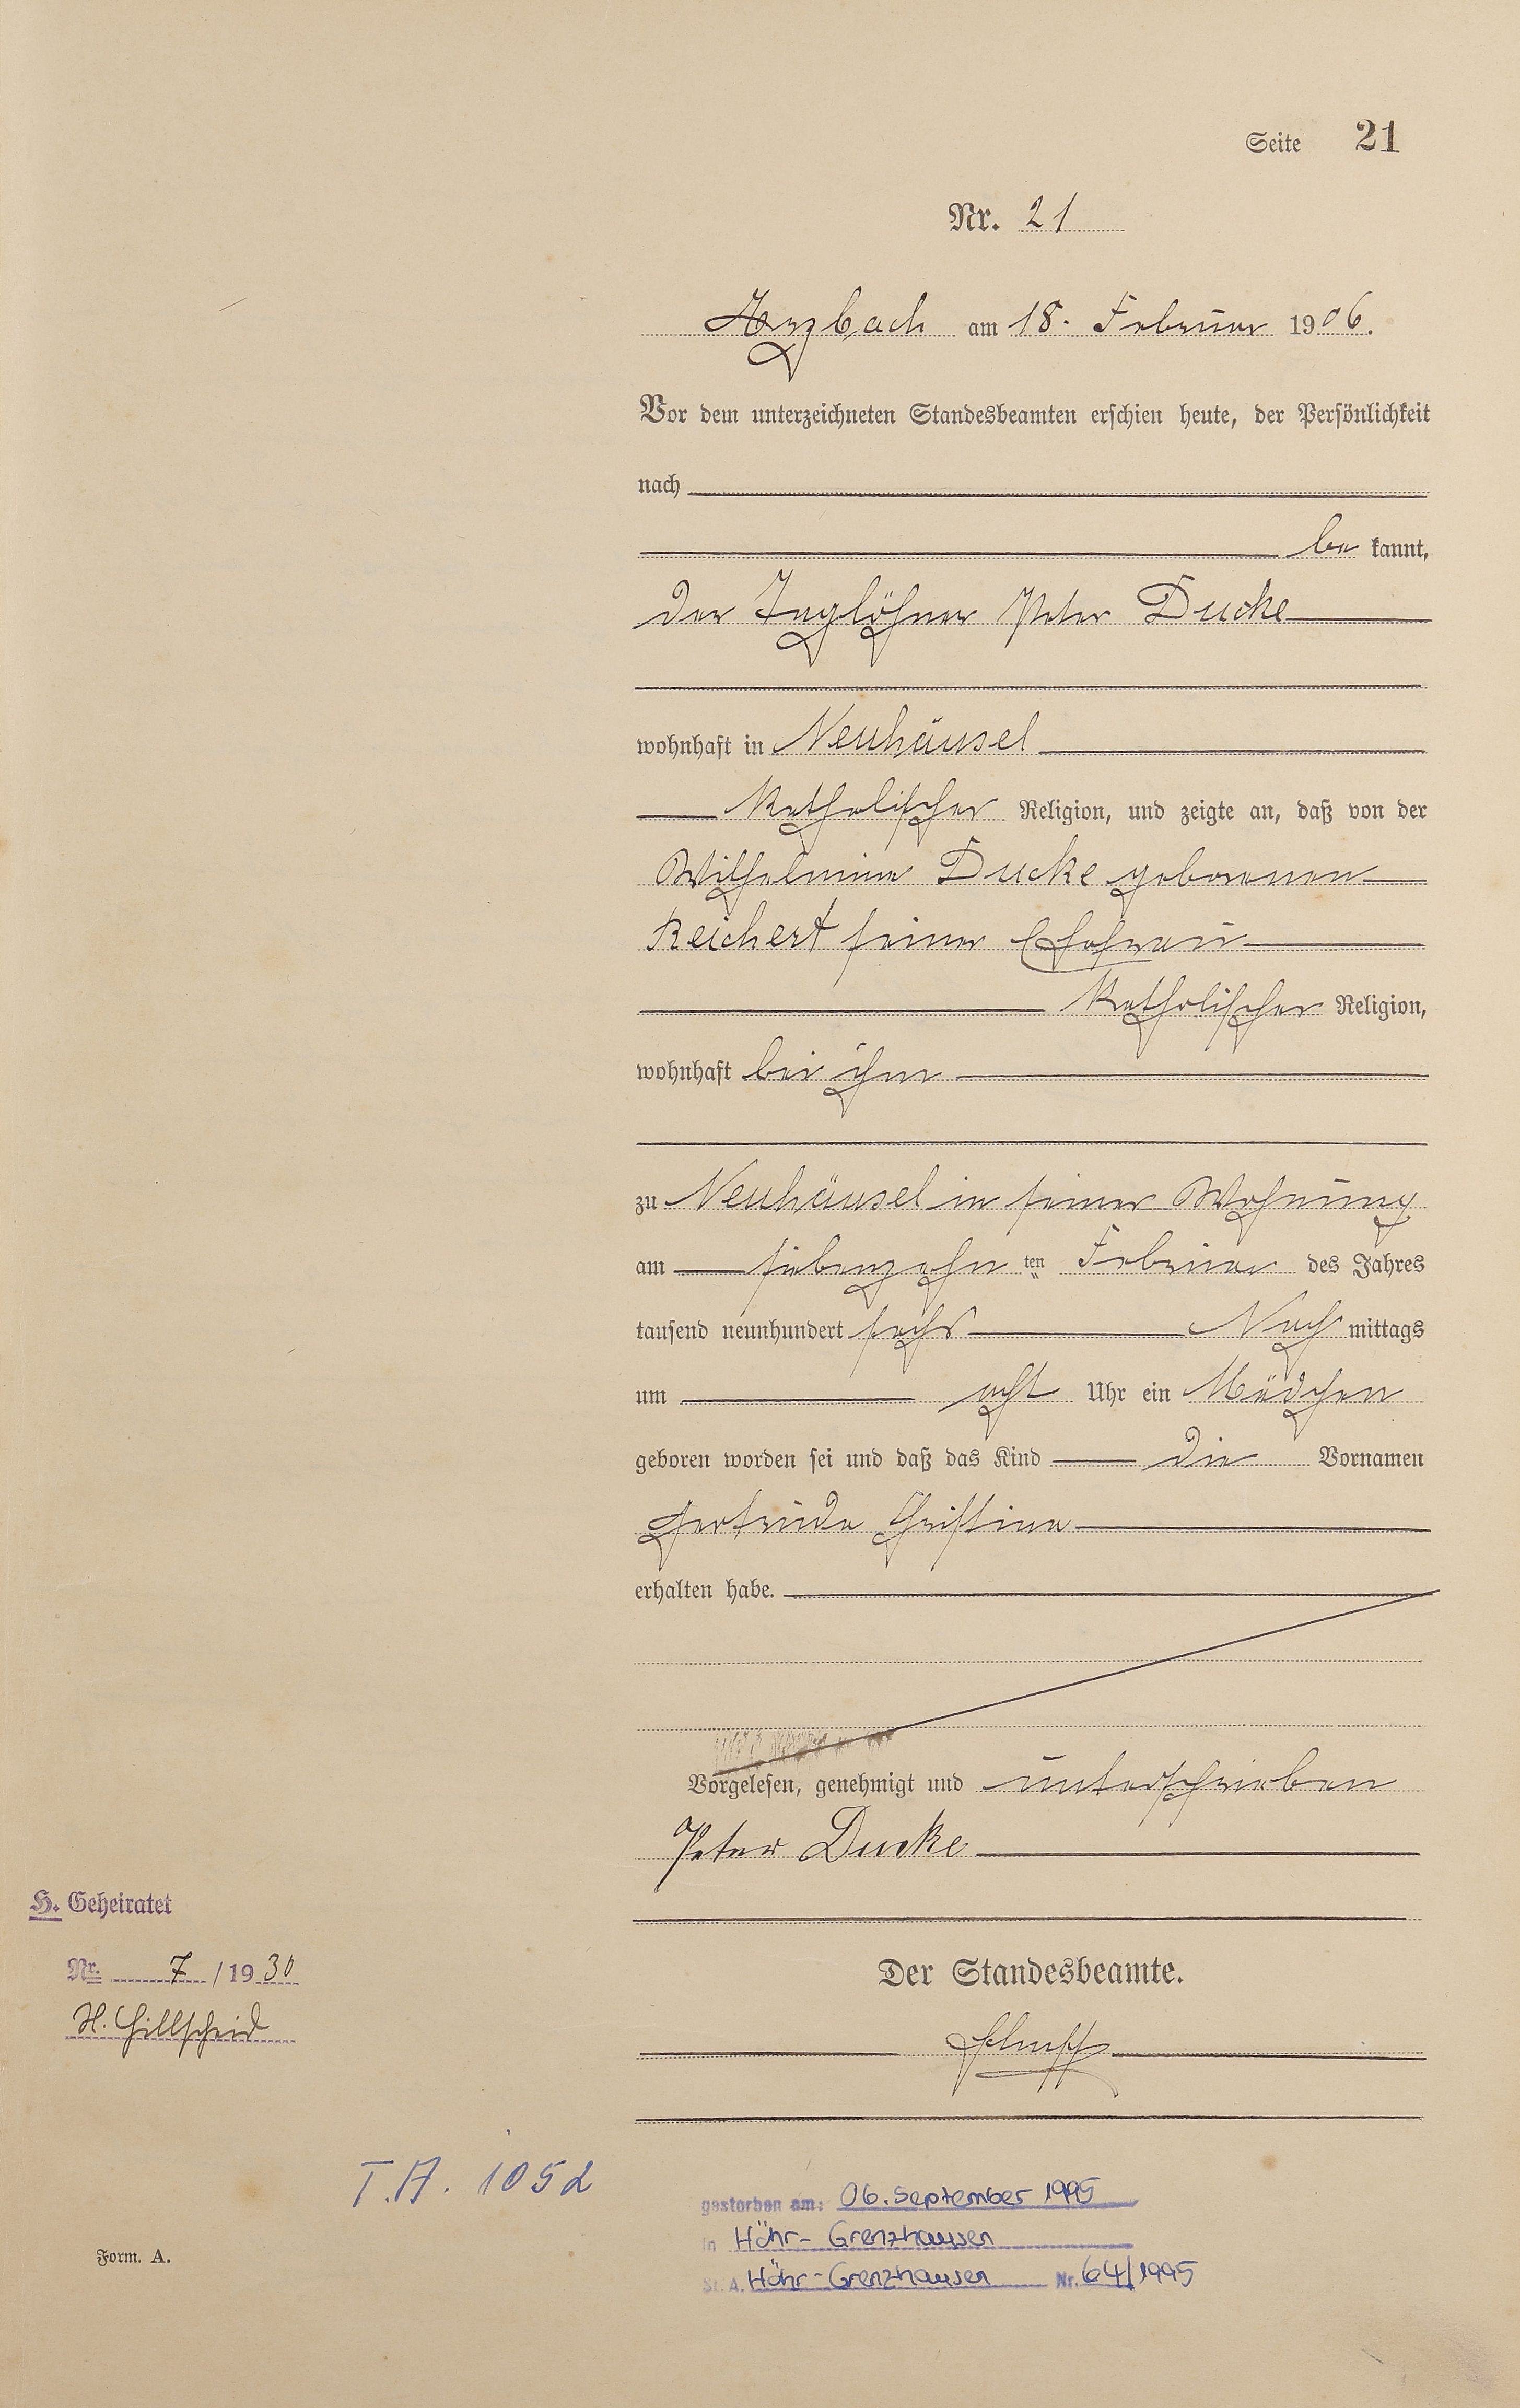 Seite 21
Nr. 21
Arzbach am 18. Februar 1906.
Vor dem unterzeichneten Standesbeamten erschien heute, der Persönlichkeit
nach
be kannt,
der Taglöhner Peter Ducke
wohnhaft in Neuhäusel
katholischer Religion, und zeigte an, daß von der
Wilhelmine Ducke geborenen
Reichert seiner Ehefrau
katholischer Religion,
wohnhaft bei ihm
zu Neuhäusel in seiner Wohnung
am siebenzehn ten Februar des Jahres
tausend neunhundert sechs Nach mittags
um acht Uhr ein Mädchen
geboren worden sei und daß das Kind die Vornamen
Gertrude Christina
erhalten habe.
Vorgelesen, genehmigt und unterschrieben
Peter Ducke
H. Geheiratet
Nr. 7 / 1930
H. Hillscheid
Der Standesbeamte.
T.A. 1052
gestorben am: 06. September 1995
in Höhr-Grenzhausen
St. A. Höhr-Grenzhausen Nr. 64/1995
Form. A.